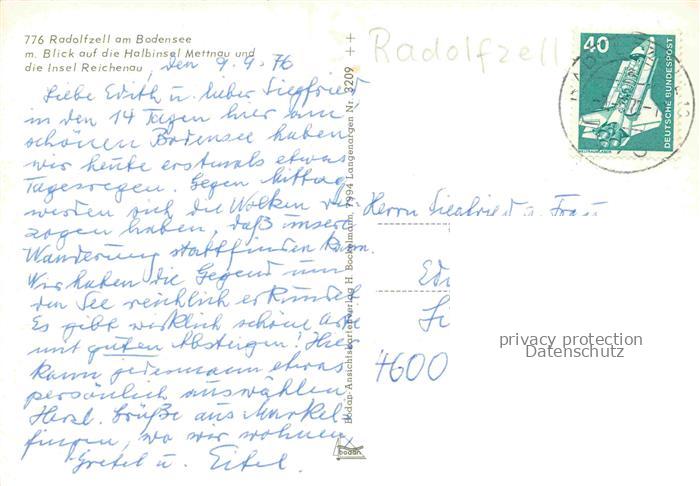 776 Radolfzell am Bodensee
m. Blick auf die Halbinsel Mettnau und
die Insel Reichenau, den 9.9.76
Liebe Edith u. lieber Siegfried
in den 14 Tagen hier am
schönen Bodensee haben
wir heute erstmals etwas
Tagesregen. Gegen Mittag
werden sich die Wolken
zogen haben, daß unsere
Wanderung stattfinden kann.
Wir haben die Gegend um
den See reichlich erkundet
Es gibt wirklich schöne Orte
mit guten Absteigen! Hier
kann jedermann etwas
persönlich auswählen
Herzl. Grüße aus Markel-
fingen, wo wir wohnen
Gretel u. Eitel.
Bodan-Ansichtskartenverlag H. Bockelmann, 7994 Langenargen Nr. 3209 ++
bodan
Radolfzell
40
DEUTSCHE BUNDESPOST
WELTRAUMLABOR
Herrn Siegfried u. Frau
Edi
4600
privacy protection
Datenschutz